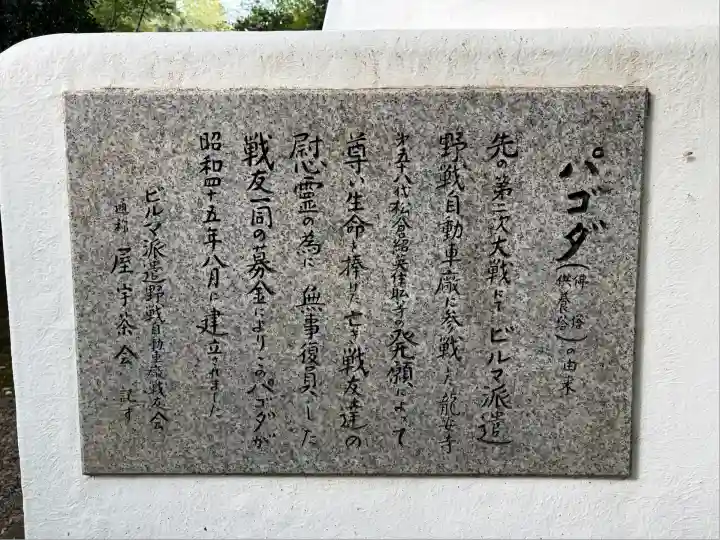 パゴダ(佛塔 供養塔)の由来
先の第二次大戦にてビルマ派遣
野戦自動車廠に参戦した龍安寺
第五十八代松倉紹英住職の発願によって
尊い生命を捧げた亡き戦友達の
慰霊の為に無事復員した
戦友一同の募金によりこのパゴダが
昭和四十五年八月に建立されました
ビルマ派遣野戦自動車廠戦友会
通称 会 記す